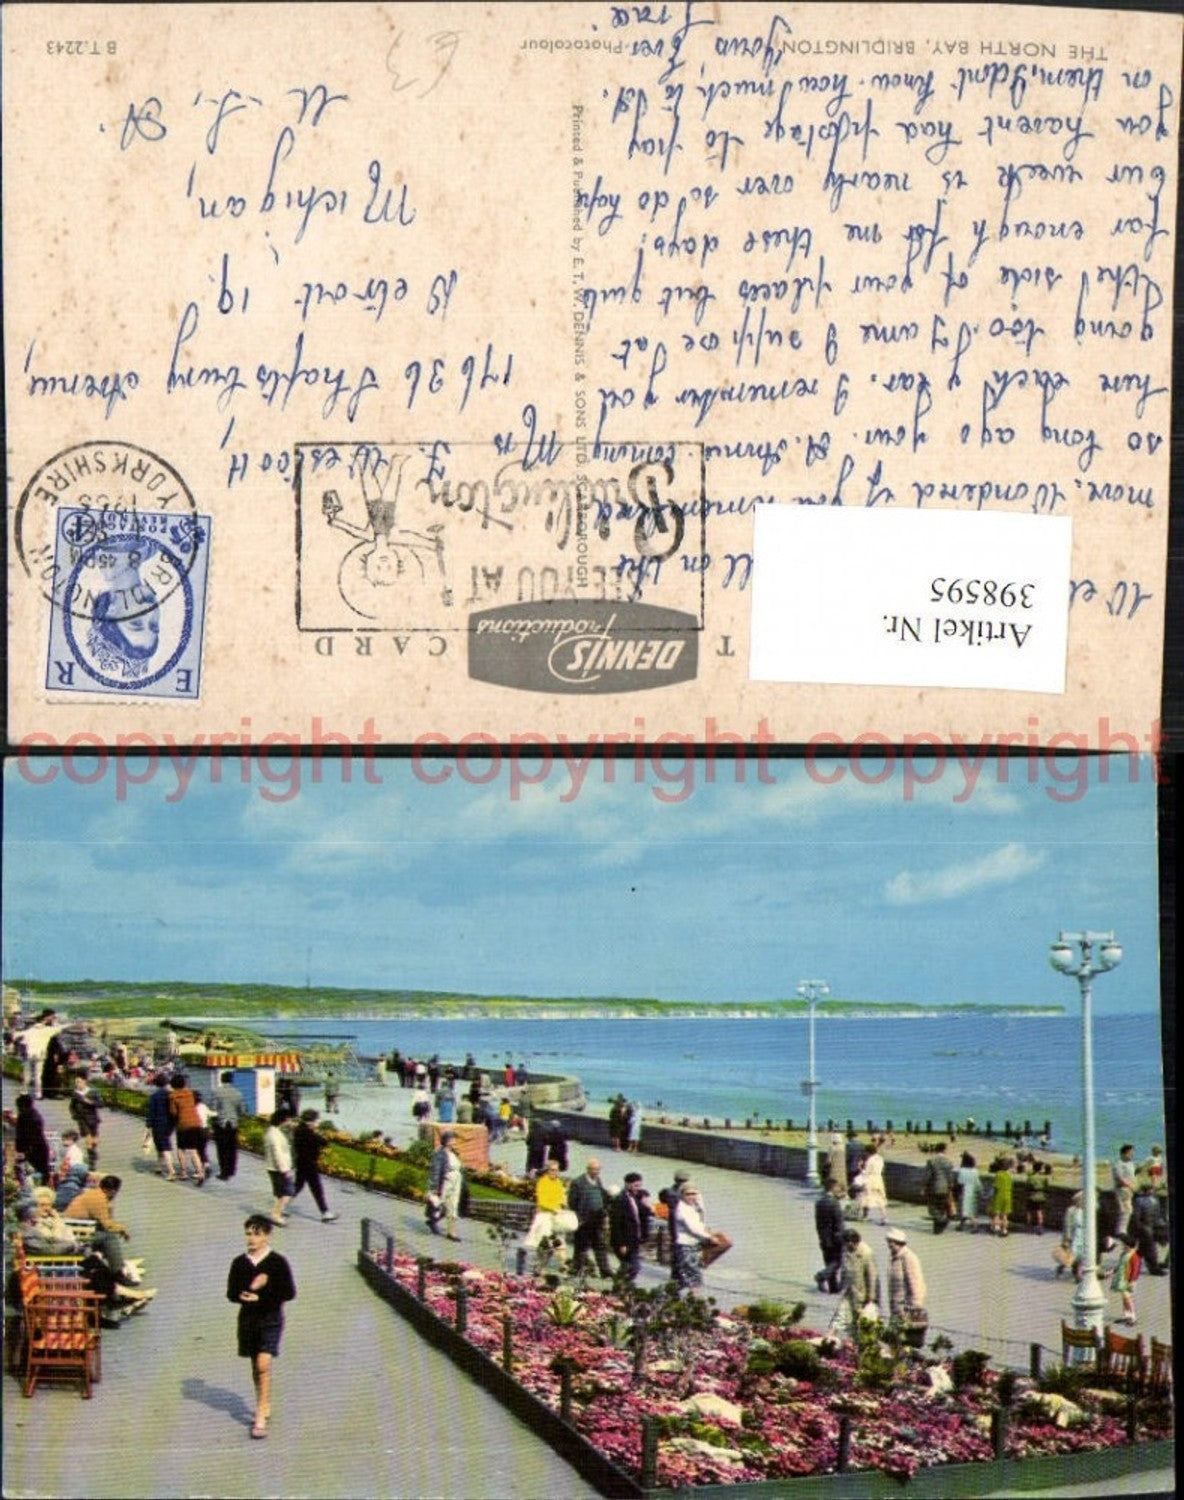 THE NORTH BAY, BRIDLINGTON
Photocolour
B T.2243
T CARD
DENNIS
Productions
Printed & Published by E. T. W. DENNIS & SONS LTD. SCARBOROUGH
SEE YOU AT
Bridlington
BRIDLINGTON
YORKSHIRE
8 45PM
E R
POSTAGE REVENUE
Artikel Nr.
398595
all on the
move. Wondered if you remembered
so long ago your A. Annie coming
here each year. I remember you
going too. I am I suppose at
the side of your places but quite
far enough for me these days!
Our week is nearly over so do hope
you havent had postage to pay
on them, I dont know how much to put.
Yours Ever
Mrs J. Westcott,
17636 Shaftsbury Avenue,
Detroit 19.
Michigan,
U.S.A.
£3
copyright copyright copyright